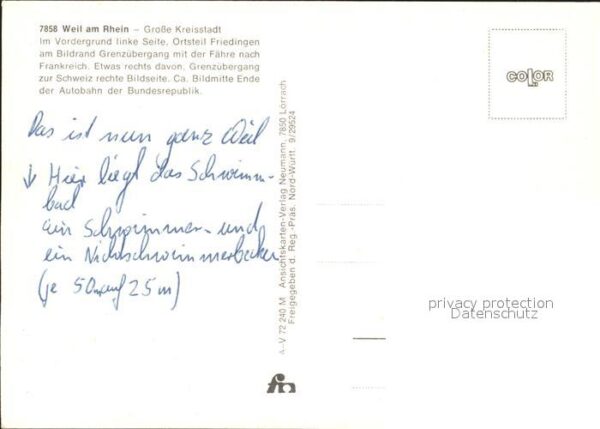 7858 Weil am Rhein – Große Kreisstadt
Im Vordergrund linke Seite, Ortsteil Friedingen
am Bildrand Grenzübergang mit der Fähre nach
Frankreich. Etwas rechts davon, Grenzübergang
zur Schweiz rechte Bildseite. Ca. Bildmitte Ende
der Autobahn der Bundesrepublik.
Das ist nun ganz Weil
↓ Hier liegt das Schwimm-
bad
ein Schwimmer- und
ein Nichtschwimmerbecken
(je 50m auf 25m)
A-V 72 240 M Ansichtskarten-Verlag Neumann, 7850 Lörrach
Freigegeben d. Reg.-Präs. Nord-Württ. 9/29524
COLOR
privacy protection
Datenschutz